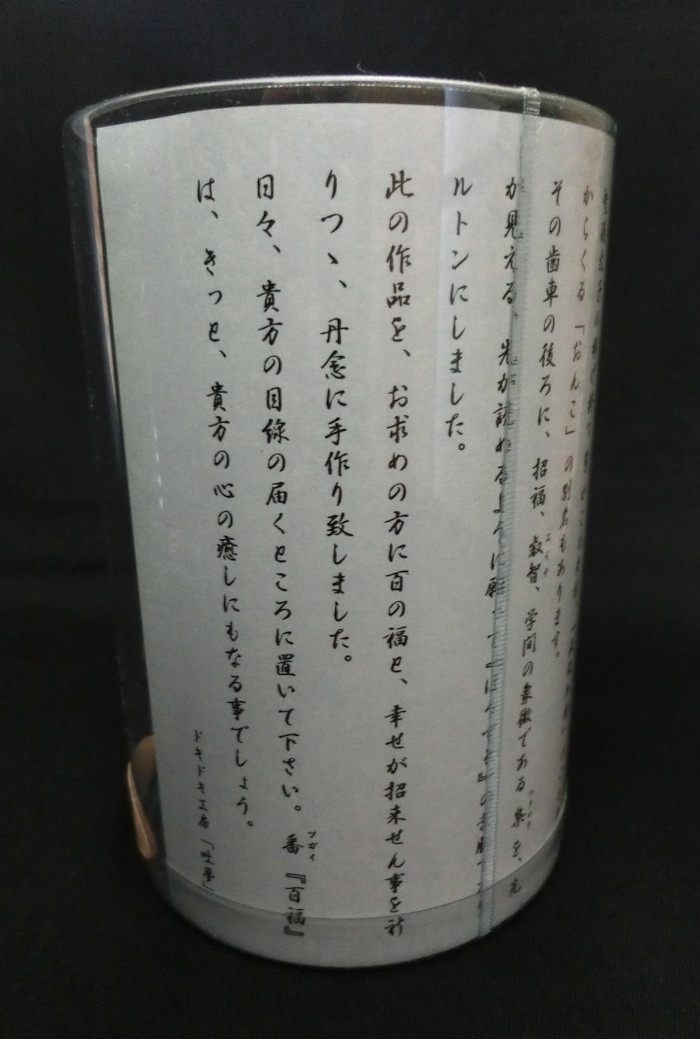 からくる「おんこ」の別名もあります。
その歯車の後ろに、招福、叡智、学問の象徴である 梟 を、先
が見える、先が読めるように願って
ルトンにしました。
此の作品を、お求めの方に百の福と、幸せが招来せん事を祈
りつゝ、丹念に手作り致しました。
日々、貴方の目線の届くところに置いて下さい。番『百福』
は、きっと、貴方の心の癒しにもなる事でしょう。
ドキドキ工房「吐夢」